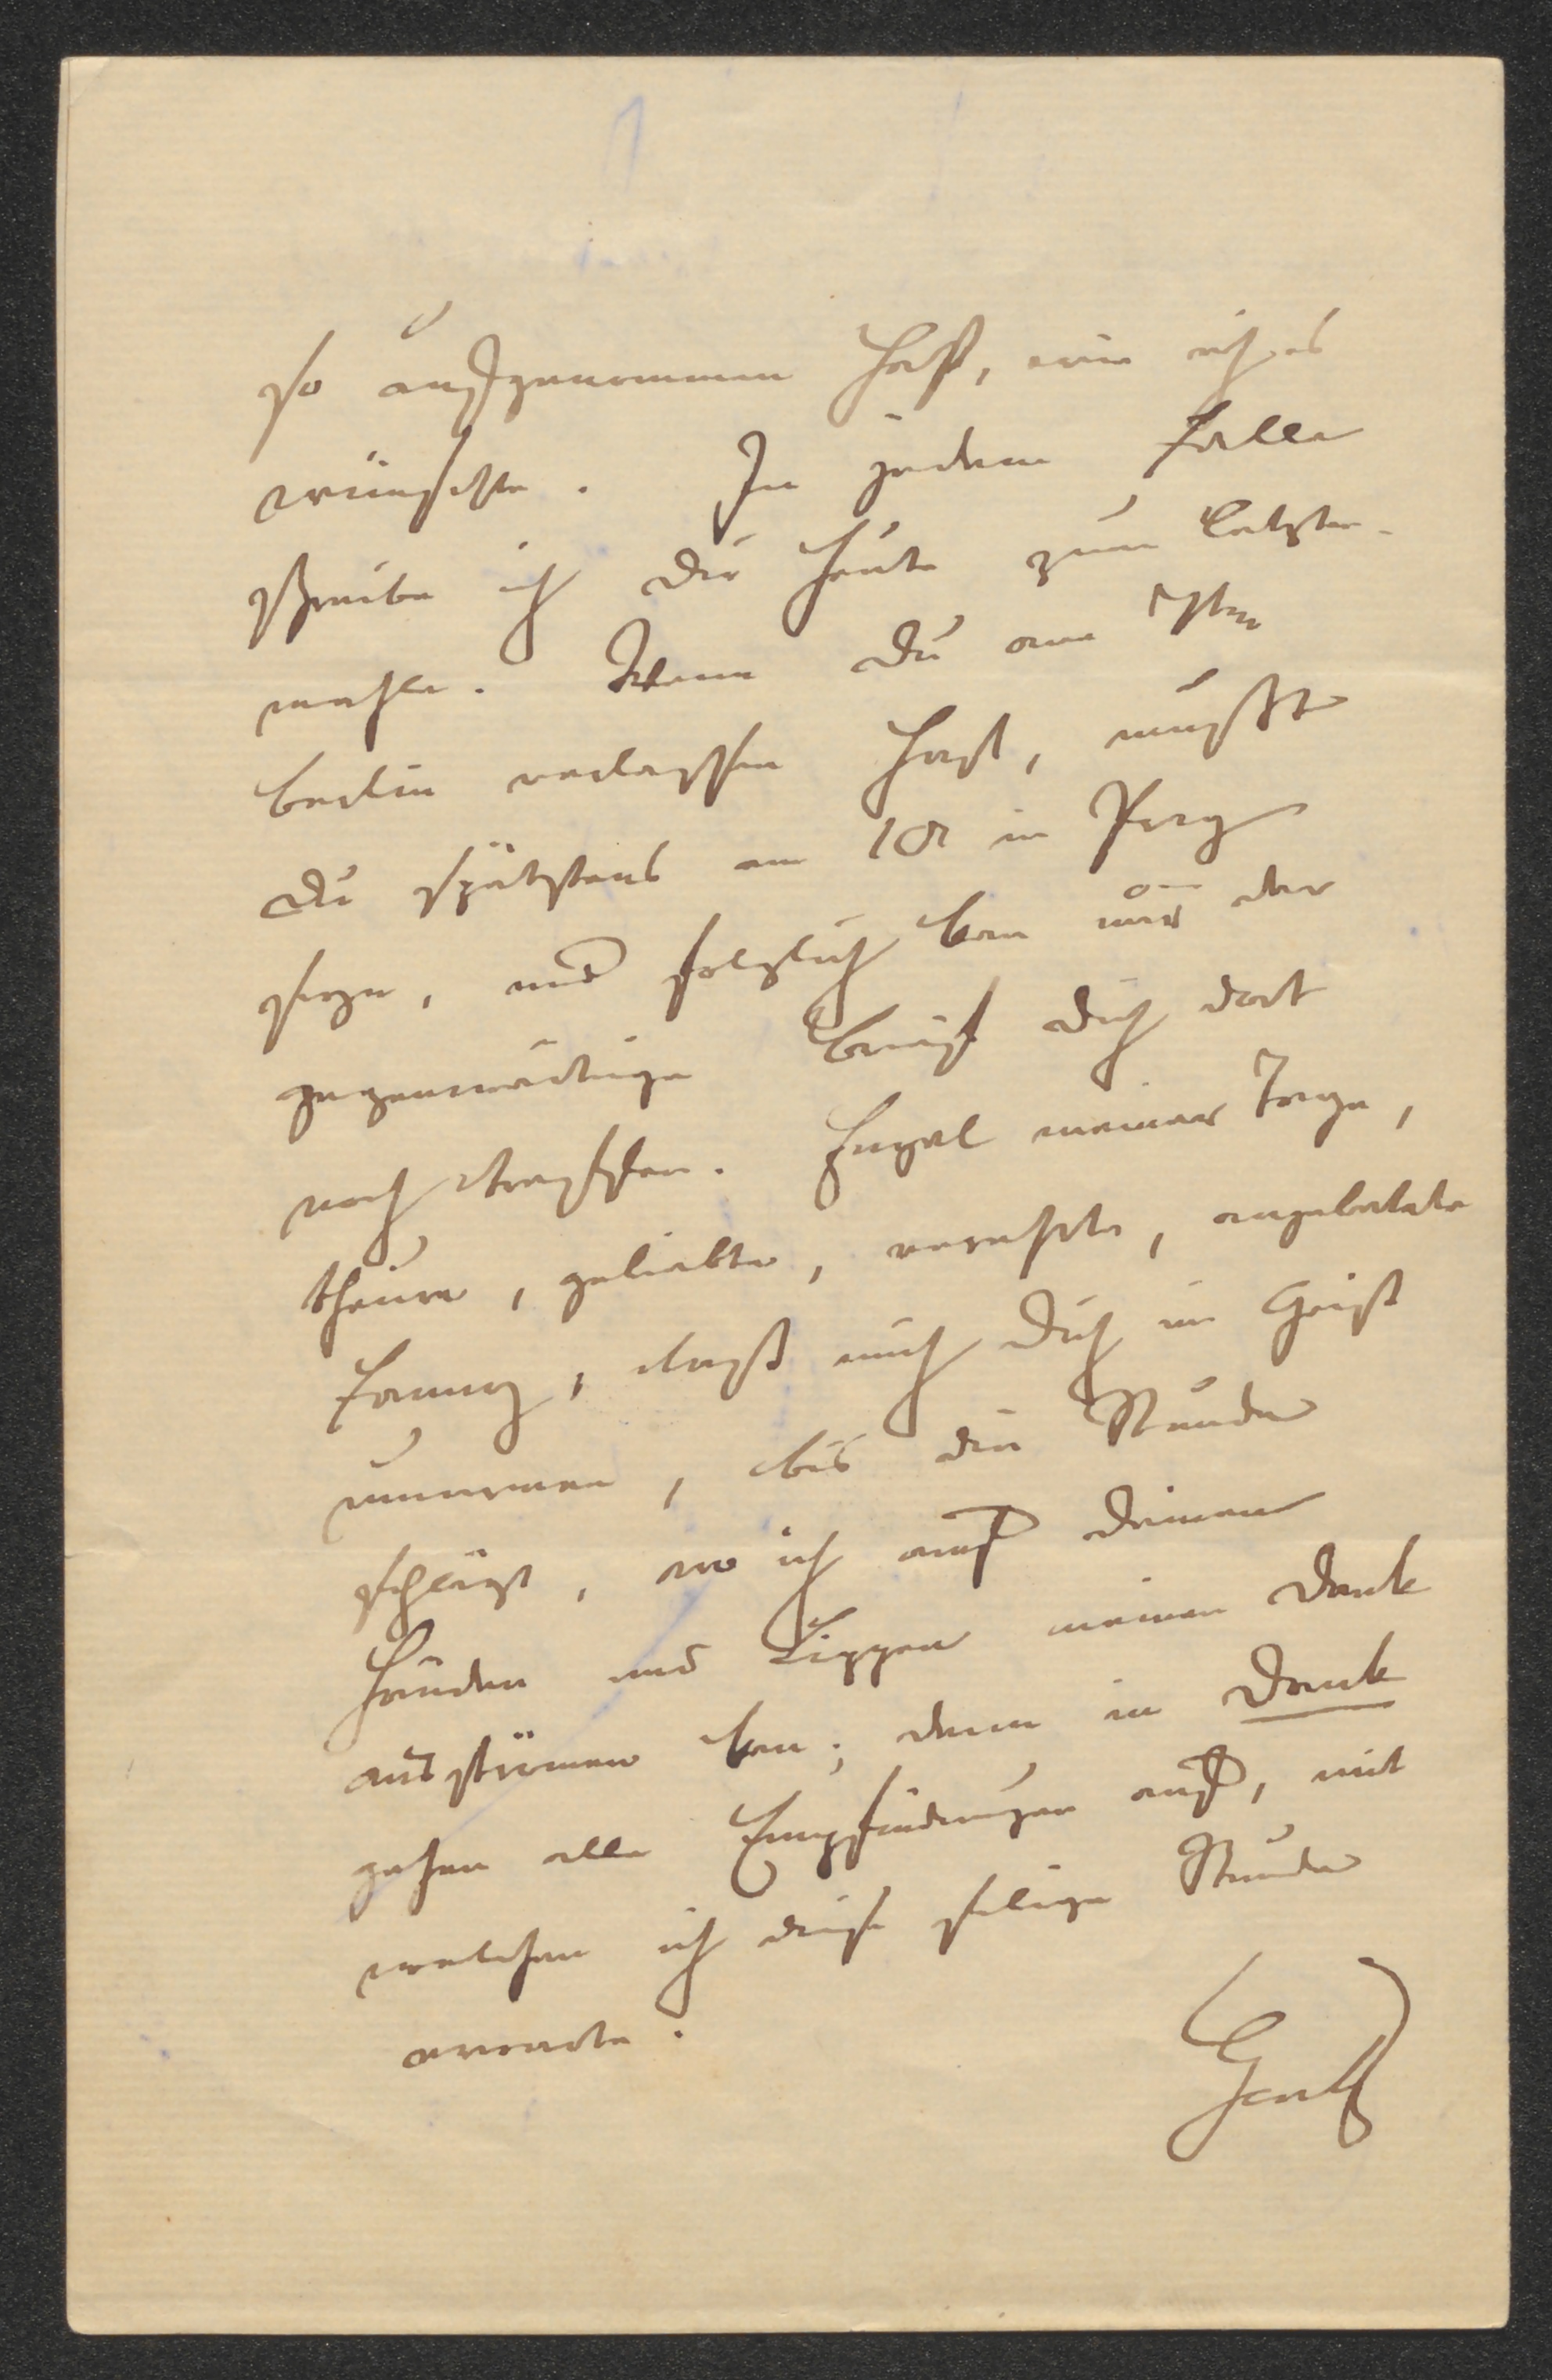 so aufgenommen hast, wie ich es
wünschte. In jedem Falle
schreibe ich Dir heute zum letzten-
mahle. Wenn Du am 7ten
Berlin verlassen hast, mußt
Du spätstens am 10t in Prag
seyn, und folglich kan nur der
gegenwärtige Brief Dich dort
noch treffen. Engel meiner Tage,
theure, geliebte, verehrte, angebetete
Fanny, laß mich Dich im Geist
umarmen, bis die Stunde
schlägt, wo ich auf Deinen
Händen und Lippen meinen Dank
ausströmen kan; denn in Dank
gehen alle Empfindungen auf, mit
welchen ich diese selige Stunde
erwarte.
Gentz